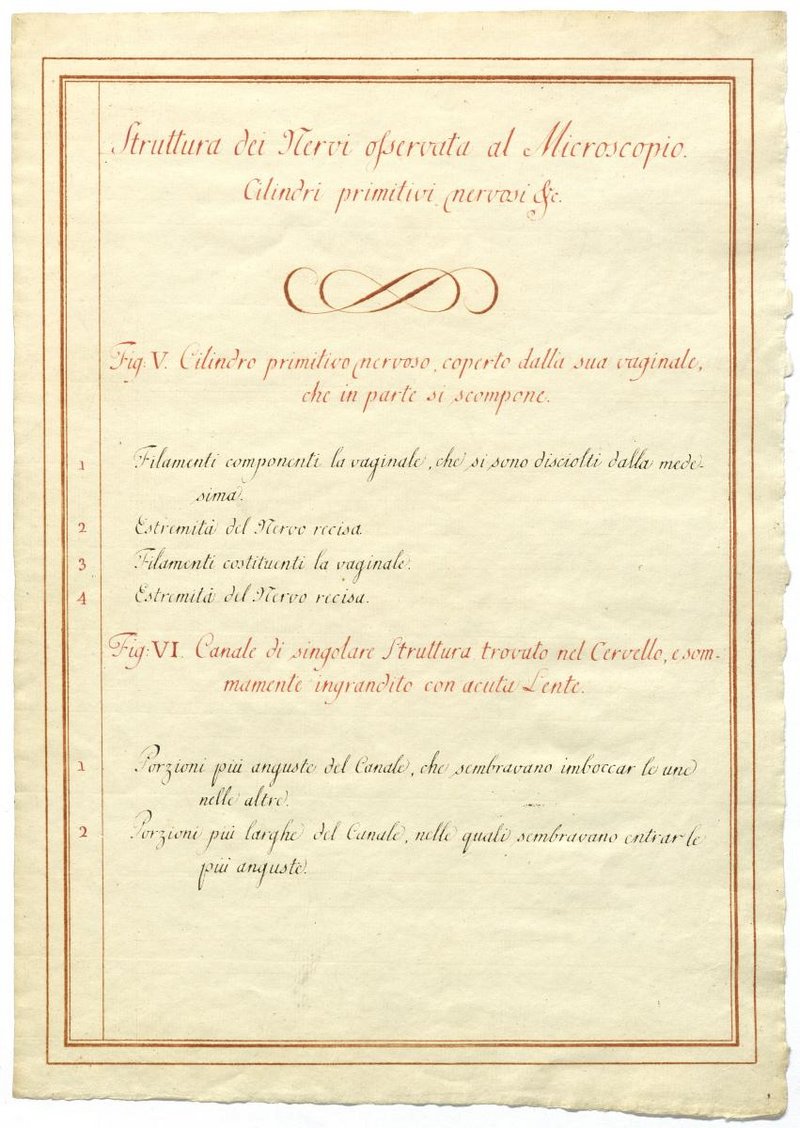 Struttura dei Nervi osservata al Microscopio.
Cilindri primitivi nervosi &c.
Fig: V. Cilindro primitivo nervoso, coperto dalla sua vaginale,
che in parte si scompone.
1 Filamenti componenti la vaginale, che si sono disciolti dalla mede-
sima.
2 Estremità del Nervo recisa.
3 Filamenti costituenti la vaginale.
4 Estremità del Nervo recisa.
Fig: VI. Canale di singolare Struttura trovato nel Cervello, e som-
mamente ingrandito con acuta Lente.
1 Porzioni più anguste del Canale, che sembravano imboccar le une
nelle altre.
2 Porzioni più larghe del Canale, nelle quali sembravano entrar le
più anguste.